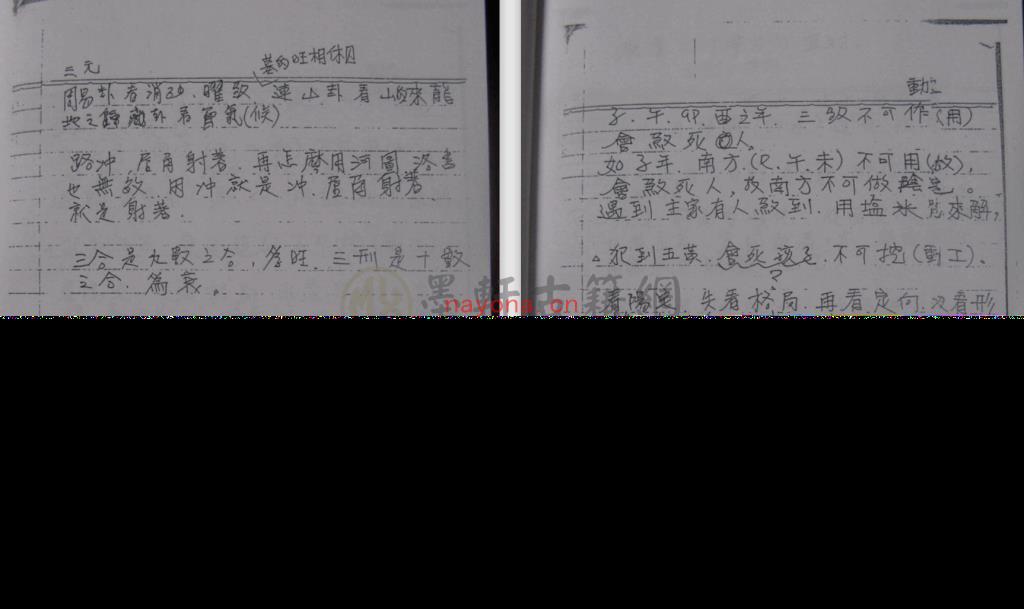 三元
墓的旺相休囚
周易卦看消砂.曜煞 連山卦看山崗來龍
地之 卦看 氣(候)
路冲.屋角射著.再怎麼用河圖洛書
也無效.因冲就是冲.屋角射著
就是射著.
三合是九數之合,為旺.三刑是十數
之合.為衰。
動土
子.午.卯.酉之年.三煞不可作(用)
會煞死人。
如子年.南方.(巳.午.未)不可用(放),
會煞死人,故南方不可做 。
遇到主家有人煞到.用塩米 來解,
△犯到五黃.會死孩子.不可挖(動工)。
?
看陽宅.先看格局.再看定向.次看形
墨軒古籍網
nayona.cn